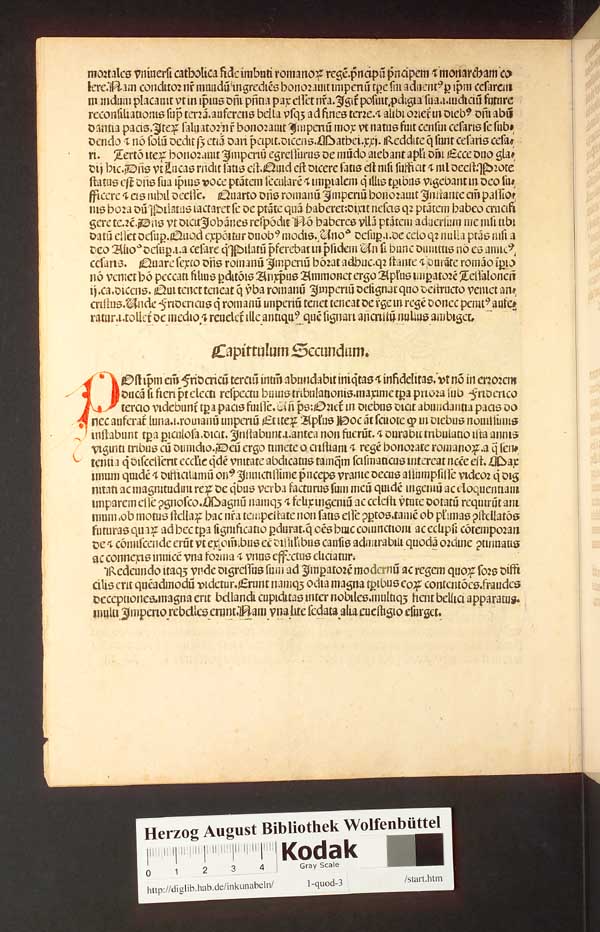 mortales vniuersi catholica fide imbuti romanoꝝ regē. pͥncipū pͥncipem ⁊ monarcham co
lere. Nam conditor nr̄ mundū ingrediēs honorauit imperiū tꝑe sui aduentꝰ ꝙ ip̄m cesarem
in mūdum placauit vt in ip̄ius dn̄i pn̄tia pax esset nr̄a. Igit̄ posuit ꝓdigia sua .i. iudiciū future
reconciliationis suꝑ terrā. auferens bella vsqꝫ ad fines terre. ⁊ alibi orie in diebꝰ dn̄i abū
dantia pacis. Iteꝝ saluator nr̄ honorauit Imperiū mox vt natus fuit censui cesaris se sub
dendo ⁊ nō solū dedit sꝫ etiā dari p̄cepit. dicens. Mathei .xxj. Reddite q̄ sunt cesaris cesa
ri. Tertō iteꝝ honorauit Imperiū egressurus de mūdo aiebant apli dn̄i Ecce duo gla
dij hic. Dn̄s vt Lucas rn̄dit satis est. Quid est dicere satis est nisi sufficit ⁊ nil deest. Prote
status est dn̄s sua ip̄ius voce ptātem secularē ⁊ imꝑialem q̄ illis tꝑibus vigebant in deo suf
ficere ⁊ eis nihil deesse. Quarto dn̄s romanū Imperiū honorauit Instante em̄ passio
nis hora dū Pilatus iactaret se de ptāte quā haberet: dixit nescis qꝛ ptātem habeo crucifi
gere te. ⁊c̄. Dn̄s vt dicit Johānes respōdit Nō haberes vllā ptātem aduersum me nisi tibi
datū esset desuꝑ. Quod expōitur duobꝰ modis. Unoº desuꝑ .i. de celo qꝛ nulla ptās nisi a
deo Alioº desuꝑ .i. a cesare q̄ Pilatū p̄ferebat in p̄sidem Un̄ si hunc dimittis nō es amicꝰ
cesaris. Quare sexto dn̄s romanū Imperiū horat adhuc. qꝛ stante ⁊ durāte romāo
nō veniet hō peccati filius ꝑditōis Anxp̄us Ammonet ergo Aplus imꝑatorē Tessalonen̄
ij. ca. dicens. Qui tenet teneat q̄ ꝟba romanū Imperiū designat quo destructo veniet an
cristus. Unde Fridericus q̄ romanū imperiū tenet teneat de rege in regē donec penitꝰ aufe
ratur .i. tollet̄ de medio ⁊ reuelet̄ ille antiquꝰ quē signari ancristū nullus ambiget.
Capittulum Secundum.
Post ip̄m em̄ Fridericū terciū intm̄ abundabit iniqͥtas ⁊ infidelitas. vt nō in errorem
ducā si fieri pt̄ electi respectu huius tribulationis. maxime tꝑa priora sub Friderico
tercio videbunt̄ tꝑa pacis fuisse. Un̄ ps: Oriet̄ in diebus dicit abundantia pacis do
nec auferat̄ luna .i. romanū imperiū Et iteꝝ Aplus Hoc āt scitote ꝙ in diebus nouissimis
instabunt tꝑa ꝑiculosa. dicit. Instabunt .i. antea non fuerūt. ⁊ durabit tribulatio ista annis
viginti tribus cū dimidio. Deū ergo timete o cristiani ⁊ regē honorate romanoꝝ. a q̄ sen
tentia q̄ discesserit ecclie qͥdē vnitate abdicatus tamqͣm scismaticus intereat ncc̄e est. Max
imum quidē ⁊ difficilimū on̄ Inuictissime pͥnceps vrante decus assumpsisse videoꝛ q̄ dig
nitati ac magnitudini reꝝ de qͥbus verba facturus sum meū quidē ingeniū ac eloquentiam
imparem esse ꝯgnosco. Magnū namqꝫ ⁊ felix ingeniū ac celesti vͥtute dotatū requirūt ani
mum. ob motus stellaꝝ hac nr̄a tempestate non satis esse ꝯptos. tamē ob plimas ꝯstellatōs
futuras quaꝝ ad hec tꝑa significatio ꝑdurat. q̄ oēs huic coniunctioni ac eclipsi cōtemporan
de ⁊ cōmiscende erūt vt ex oībus eē dissilibus causis admirabili quodā ordine ꝯtinuatis
ac connexis inuicē vna forma ⁊ vnus effectus eliciatur.
Redeundo itaqꝫ vnde digressus sum ad Imperatorē modernū ac regem quoꝝ sors diffi
cilis erit quēadmodū videtur. Erunt namqꝫ odia magna tꝑibus eoꝝ contentōes. fraudes
deceptiones. magna erit bellandi cupiditas inter nobiles. multiqꝫ fient bellici apparatus.
multi Imperio rebelles erunt. Nam vna lite sedata alia cuestigio exurget.
Herzog August Bibliothek Wolfenbüttel
0 1 2 3 4
Kodak
Gray Scale
http://diglib.hab.de/inkunabeln/ 1-quod-3 /start.htm